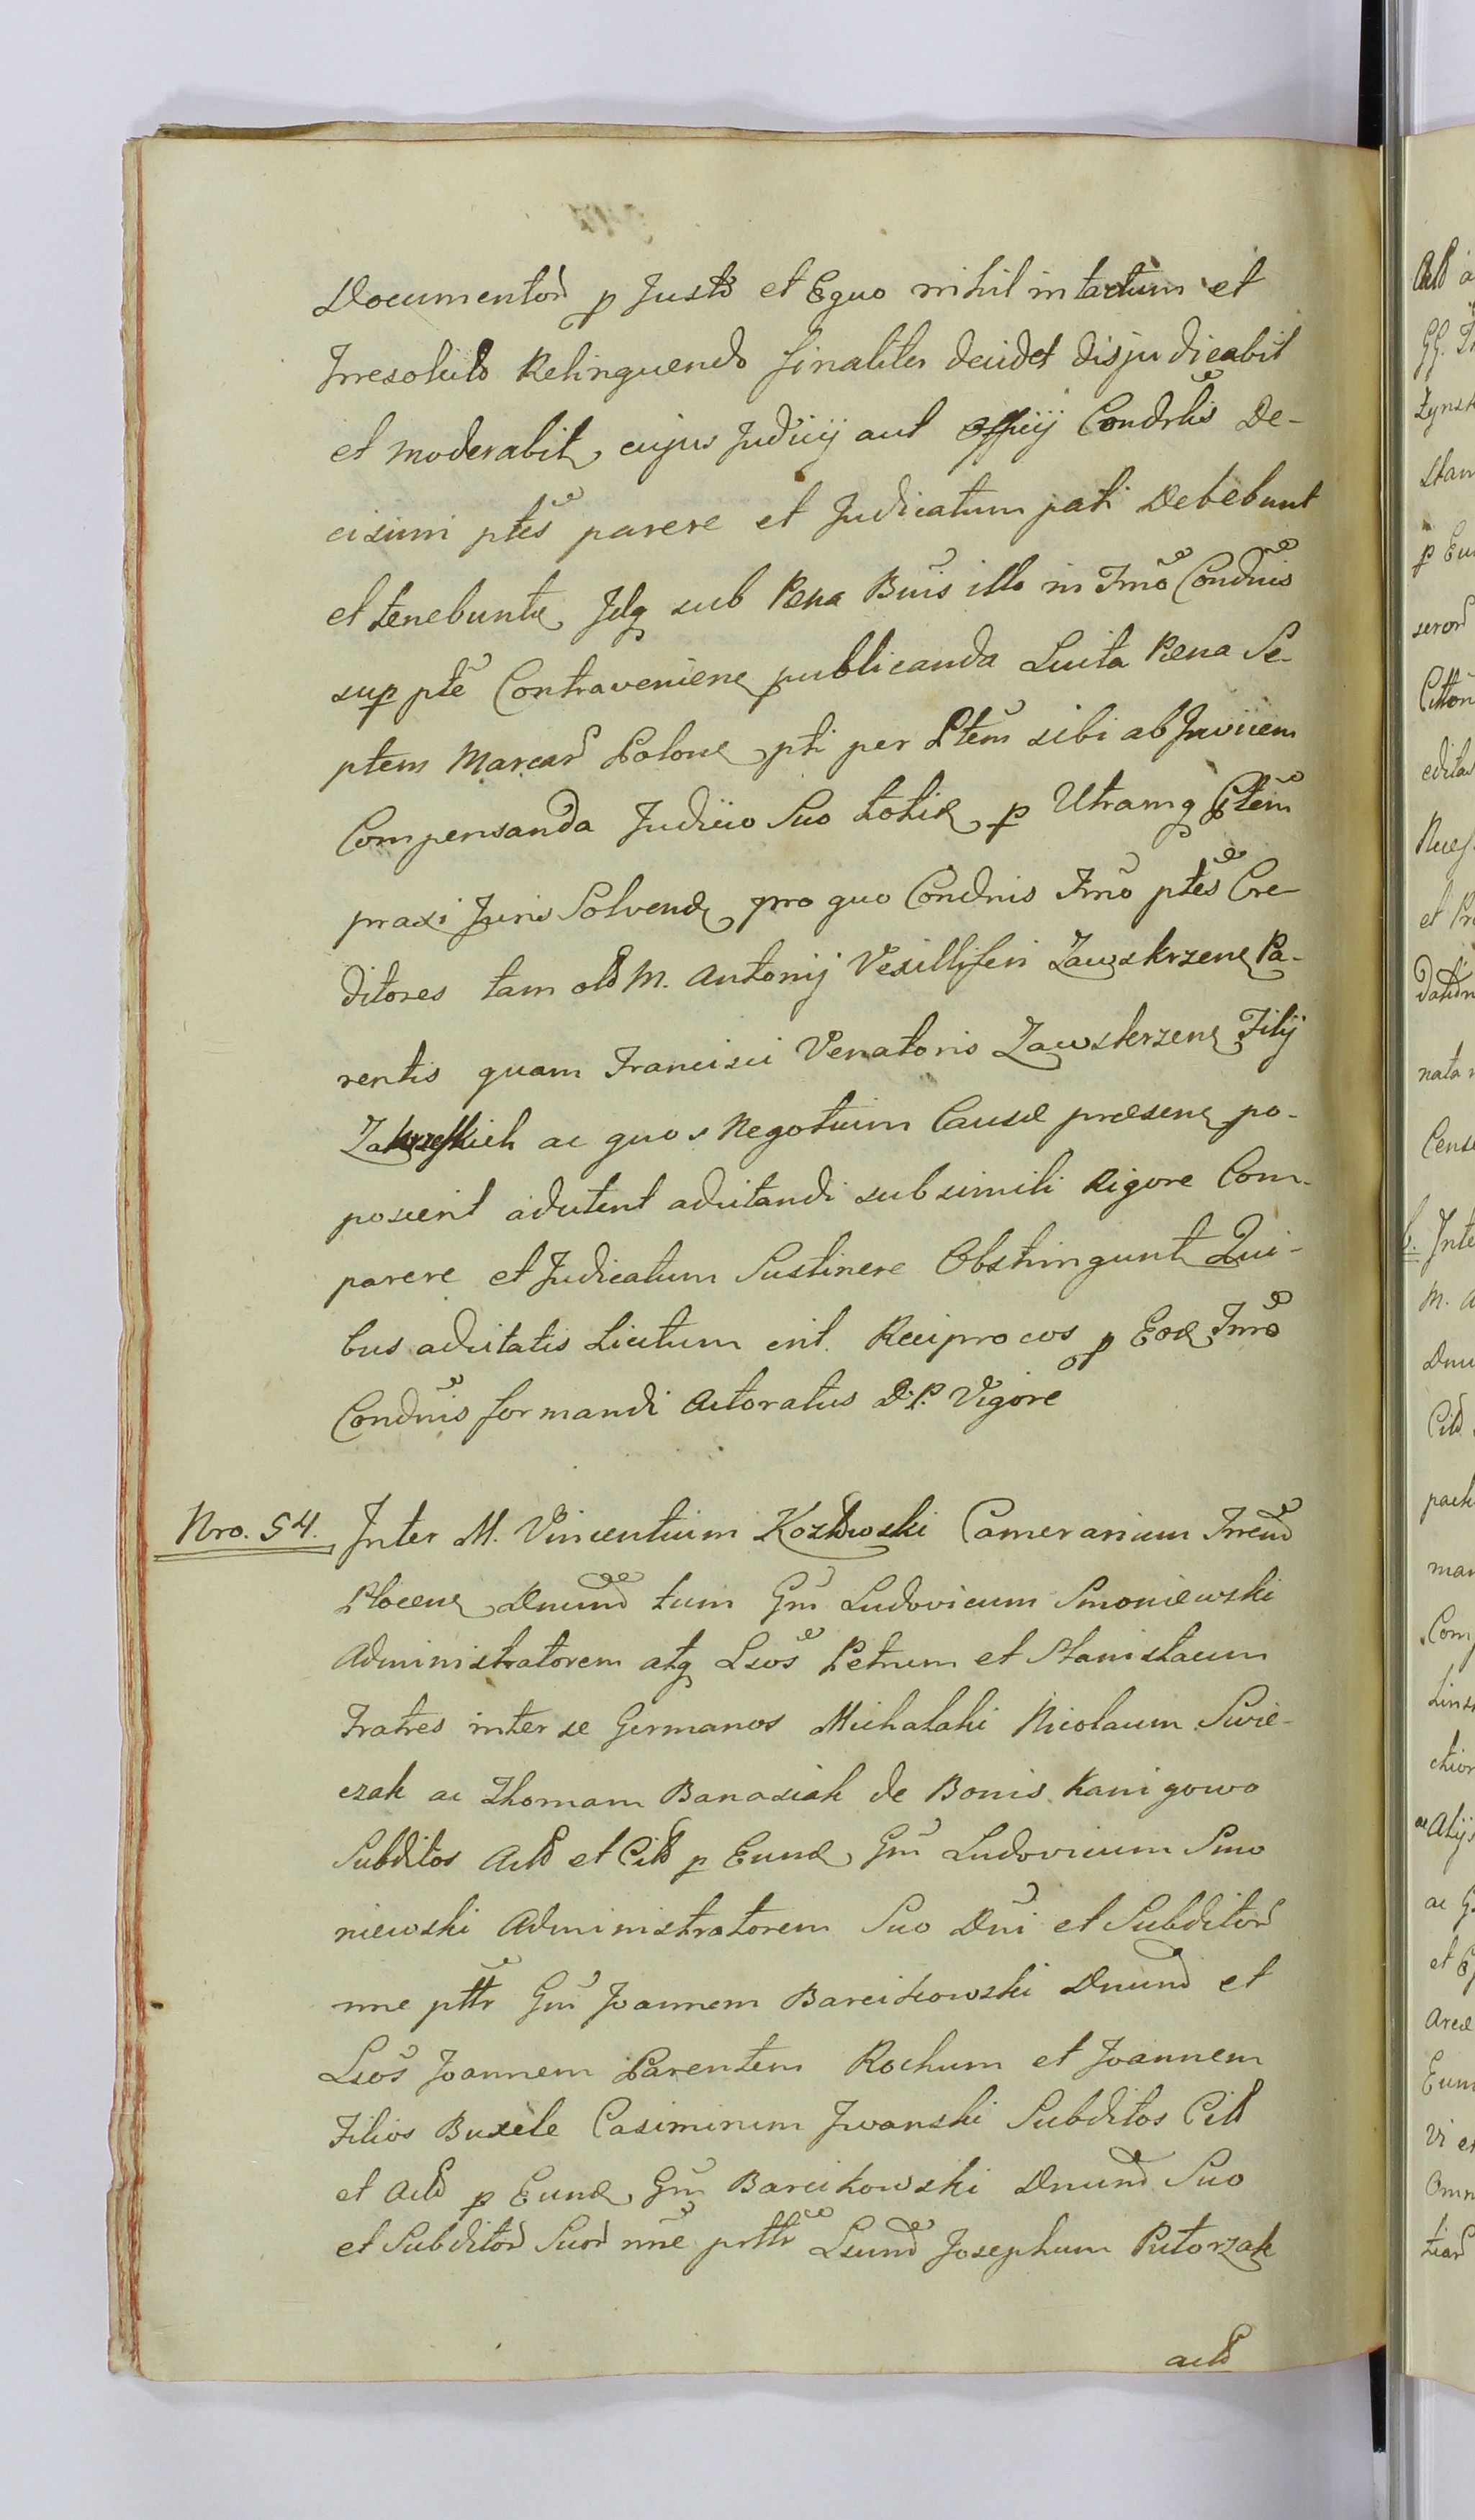 Documentoru p Justo et Equo nihil intactum et
Irresoluto Relinquendo finaliter decidet disjudicabit
et moderabit, cujus Judicij aut Officij Condrlis De-
cisum ptes parere et Judicatum pati Debebunt
et tenebuntr Idq sub Pena Bnis illo in Tmo Condnis
sup pte Contravenien publicanda Luita Pena Se-
ptem Marcaru Polon pti per Ptem sibi ab Invicem
Compensanda Judicio Suo toties p Utramq Ptem
praxi Juris Solven pro quo Condnis Tmo ptes Cre-
ditores tam olo M. Antonij Vexilliferi Zawskrzen Pa-
rentis quam Francisci Venatoris Zawskrzen Filij
Zakrzeskich ac quos Negotium Causæ præsen po-
poscerit adcitent adcitandi sub simili Rigore Com-
parere et Judicatum Sustinere Obstringunt Qui-
bus adcitatis Licitum erit Reciprocos p Eod Tmo
Condnis formandi Actoratus D: P. Vigore
Nro. 54. Inter M. Vincentium Kozłowski Camerarium Trend
Plocen Dnum tum Gm Ludovicum Smoniewski
Administratorem atq Lsos Petrum et Stanislaum
Fratres inter se Germanos Michalaki Nicolaum Swie-
czak ac Thomam Banasiak de Bonis Kanigowo
Subditos Acto et Cito p Eund Gm Ludovicum Smo
niewski Administratorem Suo Dni et Subditoru
nne pttr Gm Joannem Barcikowski Dnum et
Lsos Joannem Parentem Rochum et Joannem
Filios Buxele Casimirum Iwanski Subditos Cito
et Acto p Eund Gm Barcikowski Dnum Suo
et Subditoru Suoru nne prttr Lsum Josephum Putorzak
acto